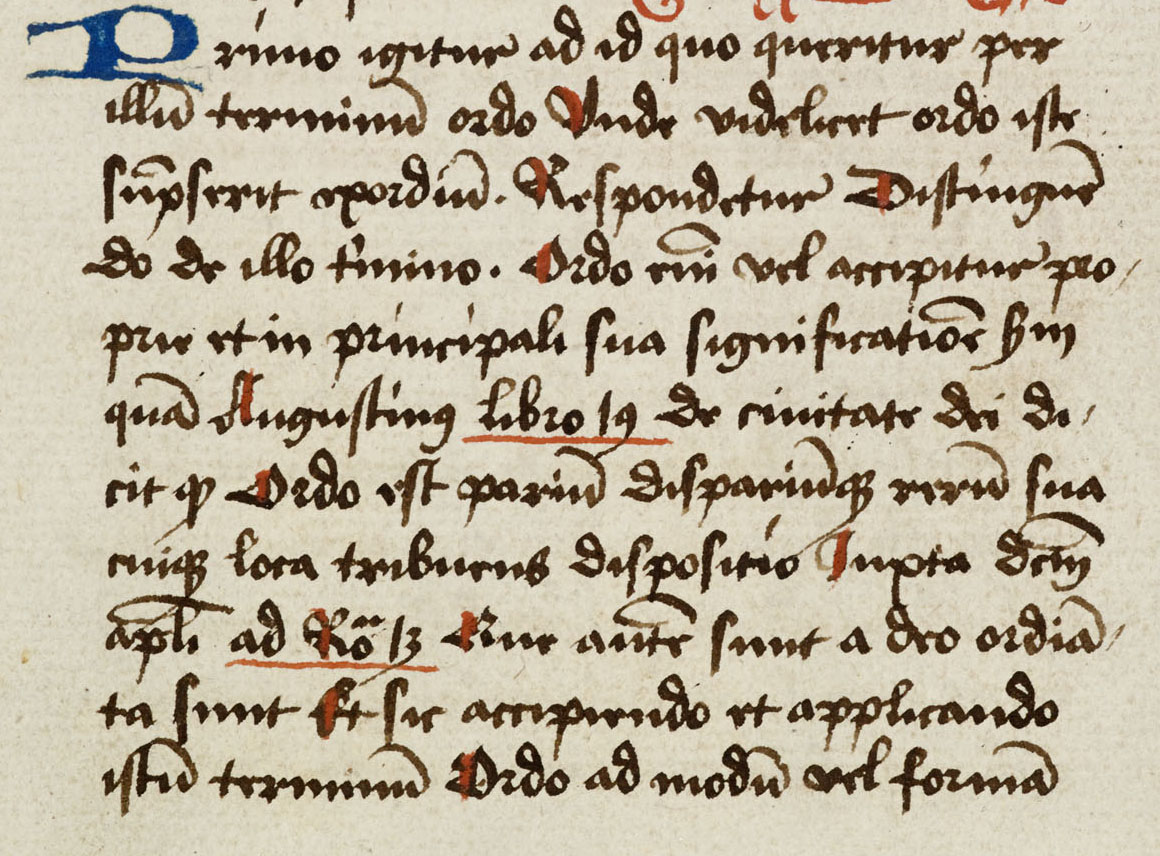 Primo igitur ad id quo queritur per
illū terminū ordo Vnde videlicet ordo iste
sūpserit exordiū. Respondetur Distinguē
do de illo t'mino. Ordo em̄ vel accipitur pro-
prie et in principali sua significatiōe scḋm
quā Augustinꝯ libro 19 de ciuitate dei di-
cit ꝙ Ordo est pariū dispariūqꝫ rerū sua
cuiqꝫ loca tribuens dispositio Iuxta dcm̄
apl̄i ad Ro 13 Que aut̄e sunt a deo ordiā-
ta sunt Et sic accipiendo et applicando
istū terminū Ordo ad modū vel formā